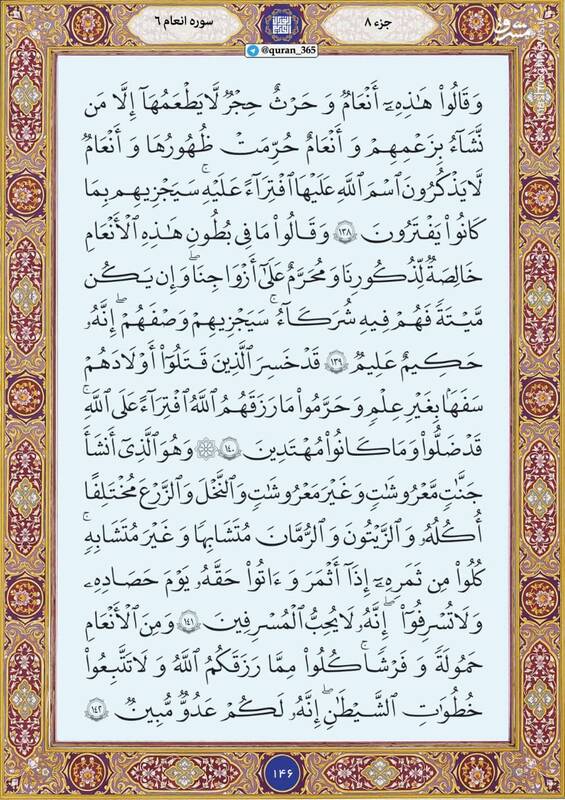 جزء ۸
سوره انعام ۶
@quran_365
مشرق
وَقَالُوا۟ هَـٰذِهِۦٓ أَنْعَـٰمٌ وَ حَرْثٌ حِجْرٌ لَّا يَطْعَمُهَآ إِلَّا مَن
نَّشَآءُ بِزَعْمِهِمْ وَ أَنْعَـٰمٌ حُرِّمَتْ ظُهُورُهَا وَ أَنْعَـٰمٌ
لَّا يَذْكُرُونَ ٱسْمَ ٱللَّهِ عَلَيْهَا ٱفْتِرَآءً عَلَيْهِۚ سَيَجْزِيهِم بِمَا
كَانُوا۟ يَفْتَرُونَ ۱۳۸ وَقَالُوا۟ مَا فِى بُطُونِ هَـٰذِهِ ٱلْأَنْعَـٰمِ
خَالِصَةٌ لِّذُكُورِنَا وَ مُحَرَّمٌ عَلَىٰٓ أَزْوَٰجِنَاۖ وَ إِن يَكُن
مَّيْتَةً فَهُمْ فِيهِ شُرَكَآءُۚ سَيَجْزِيهِمْ وَصْفَهُمْۖ إِنَّهُۥ
حَكِيمٌ عَلِيمٌ ۱۳۹ قَدْ خَسِرَ ٱلَّذِينَ قَتَلُوٓا۟ أَوْلَـٰدَهُمْ
سَفَهًۢا بِغَيْرِ عِلْمٍ وَ حَرَّمُوا۟ مَا رَزَقَهُمُ ٱللَّهُ ٱفْتِرَآءً عَلَى ٱللَّهِۚ
قَدْ ضَلُّوا۟ وَ مَا كَانُوا۟ مُهْتَدِينَ ۱۴۰ ۞ وَهُوَ ٱلَّذِىٓ أَنشَأَ
جَنَّـٰتٍ مَّعْرُوشَـٰتٍ وَ غَيْرَ مَعْرُوشَـٰتٍ وَ ٱلنَّخْلَ وَ ٱلزَّرْعَ مُخْتَلِفًا
أُكُلُهُۥ وَ ٱلزَّيْتُونَ وَ ٱلرُّمَّانَ مُتَشَـٰبِهًا وَ غَيْرَ مُتَشَـٰبِهٍۚ
كُلُوا۟ مِن ثَمَرِهِۦٓ إِذَآ أَثْمَرَ وَ ءَاتُوا۟ حَقَّهُۥ يَوْمَ حَصَادِهِۦ
وَلَا تُسْرِفُوٓا۟ۚ إِنَّهُۥ لَا يُحِبُّ ٱلْمُسْرِفِينَ ۱۴۱ وَمِنَ ٱلْأَنْعَـٰمِ
حَمُولَةً وَ فَرْشًاۚ كُلُوا۟ مِمَّا رَزَقَكُمُ ٱللَّهُ وَ لَا تَتَّبِعُوا۟
خُطُوَٰتِ ٱلشَّيْطَـٰنِۚ إِنَّهُۥ لَكُمْ عَدُوٌّ مُّبِينٌ ۱۴۲
۱۴۶